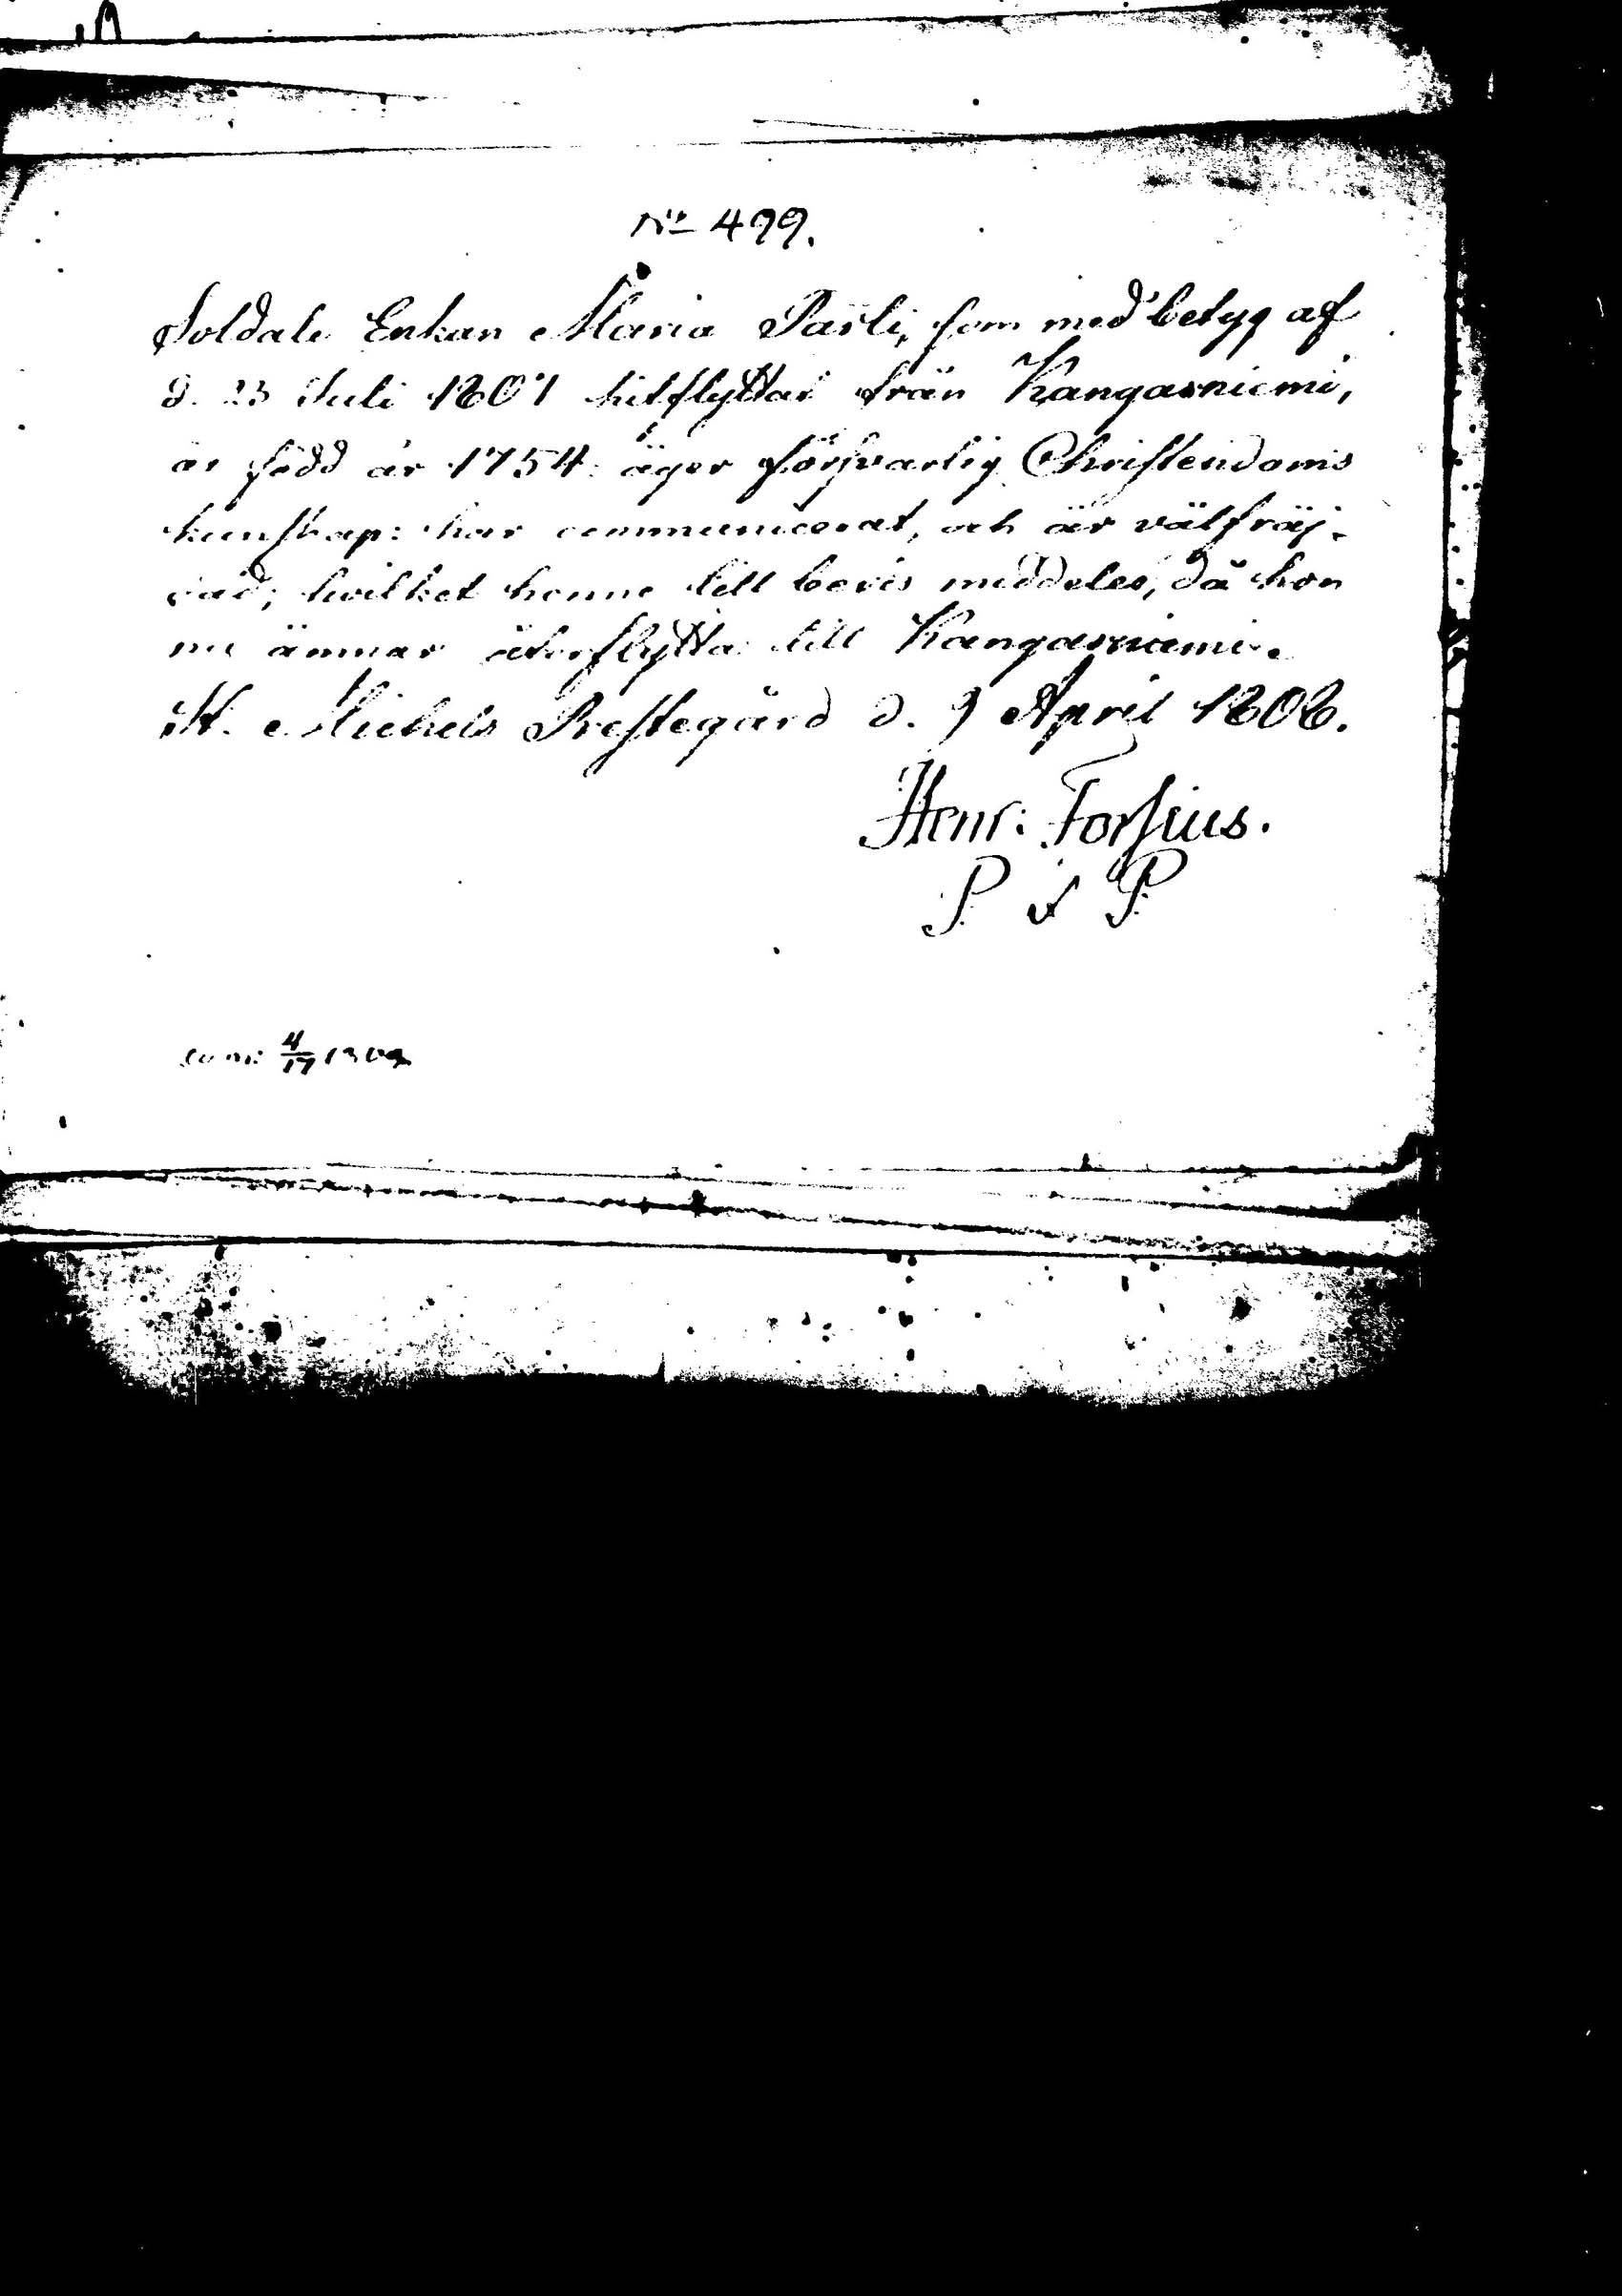 No 499.
Soldate Enkan Maria Pasli, som med betyg af
d. 23 Juli 1801 hitflyttat från Kangasniemi,
är född år 1754: äger försvarlig Christendoms
kunskap: har communicerat, och är välfräj-
dad; hvilket henne till bevis meddeles, då hon
nu ämnar återflytta till Kangasniemi.
St. Michels Prestegård d. 9 April 1808.
Henr: Forsius.
P P
com: 4/17 1809